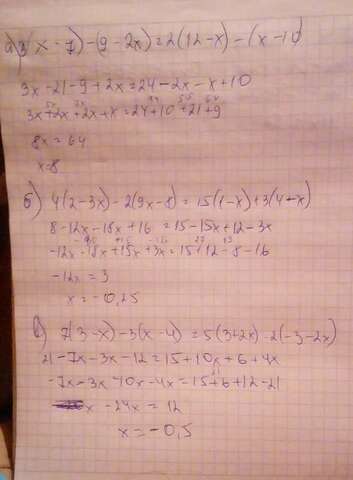 а) 3(x-7)-(9-2x)=2(12-x)-(x-10)
3x-21-9+2x=24-2x-x+10
3x+2x+2x+x=24+10+21+9
8x=64
x=8
б) 4(2-3x)-2(9x-8)=15(1-x)+3(4-x)
8-12x-18x+16=15-15x+12-3x
-12x-18x+15x+3x=15+12-8-16
-12x=3
x=-0,25
в) 7(3-x)-3(x-4)=5(3+2x)-2(-3-2x)
21-7x-3x-12=15+10x+6+4x
-7x-3x-10x-4x=15+6+12-21
-24x=12
x=-0,5